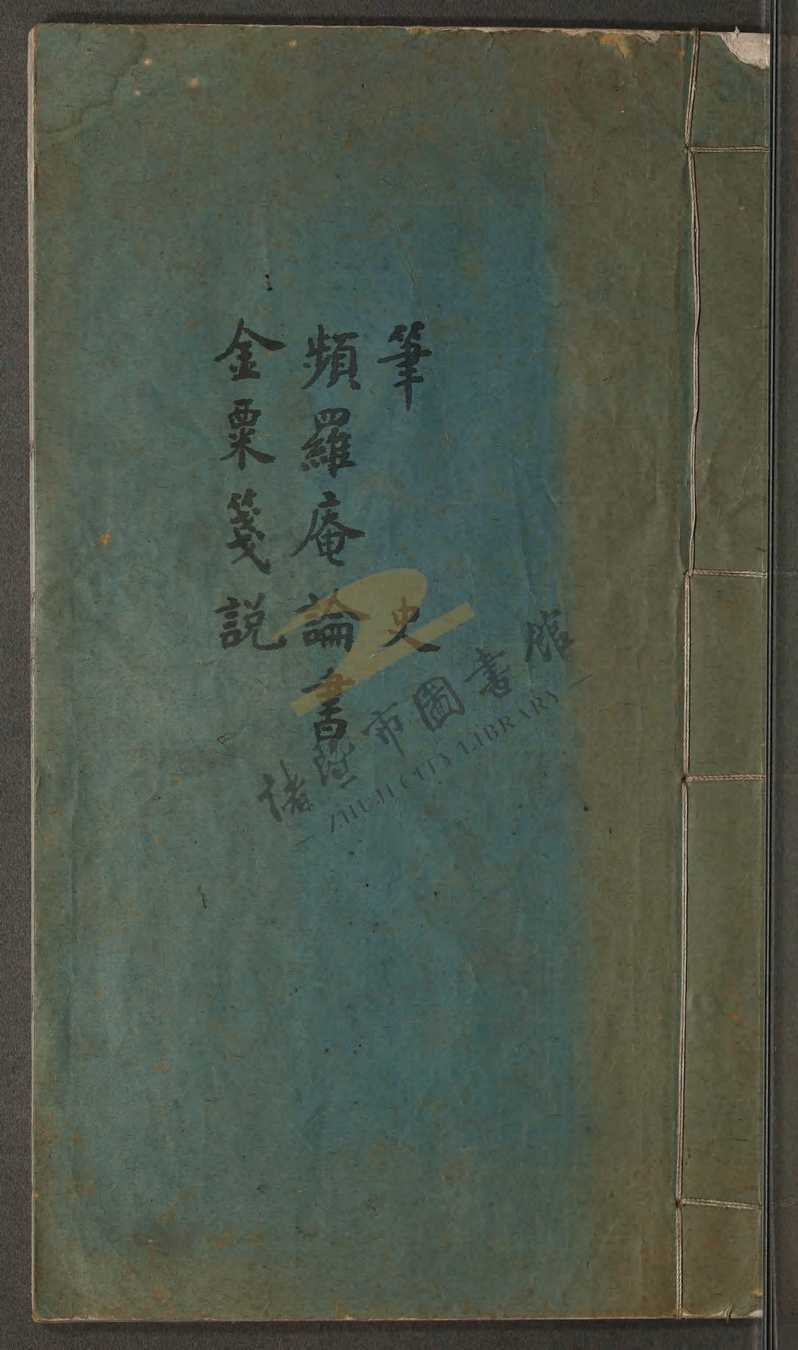 筆史
頻羅庵論書
金粟箋説
諸暨市圖書館
ZHUJI CITY LIBRARY